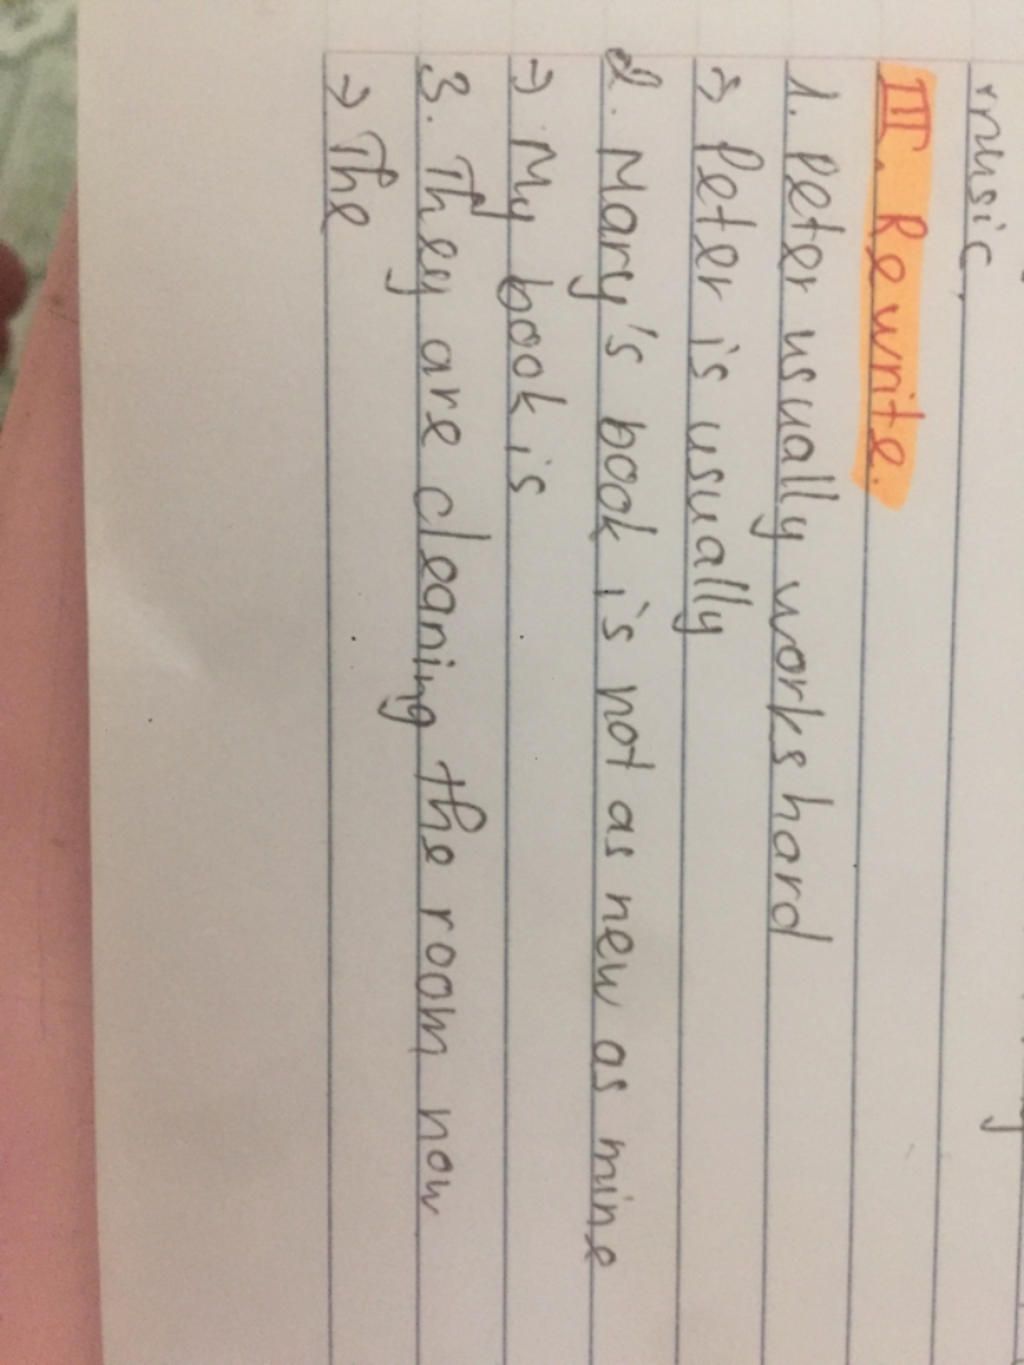 music.
III. Rewrite.
1. Peter usually works hard
→ Peter is usually
2. Mary's book is not as new as mine
→ My book is
3. They are cleaning the room now
→ The